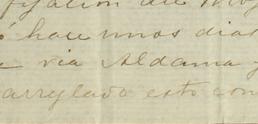 fijacion del
hace unos dias
via Aldama y
arreglado esto con